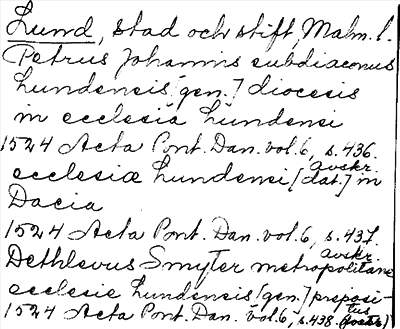 Lund, stad och stift, Malm. l.
Petrus Johannis subdiaconus
lundensis [gen.] diocesis
in ecclesia lundensi
1524 Acta Pont. Dan. vol. 6, s. 436.
avskr.
ecclesiæ lundensi [dat.] in
Dacia
1524 Acta Pont. Dan. vol. 6, s. 437.
avskr.
Dethlevus Smyter metropolitane
ecclesie lundensis [gen.] preposi-
tus
1524 Acta Pont. Dan. vol. 6, s. 438.